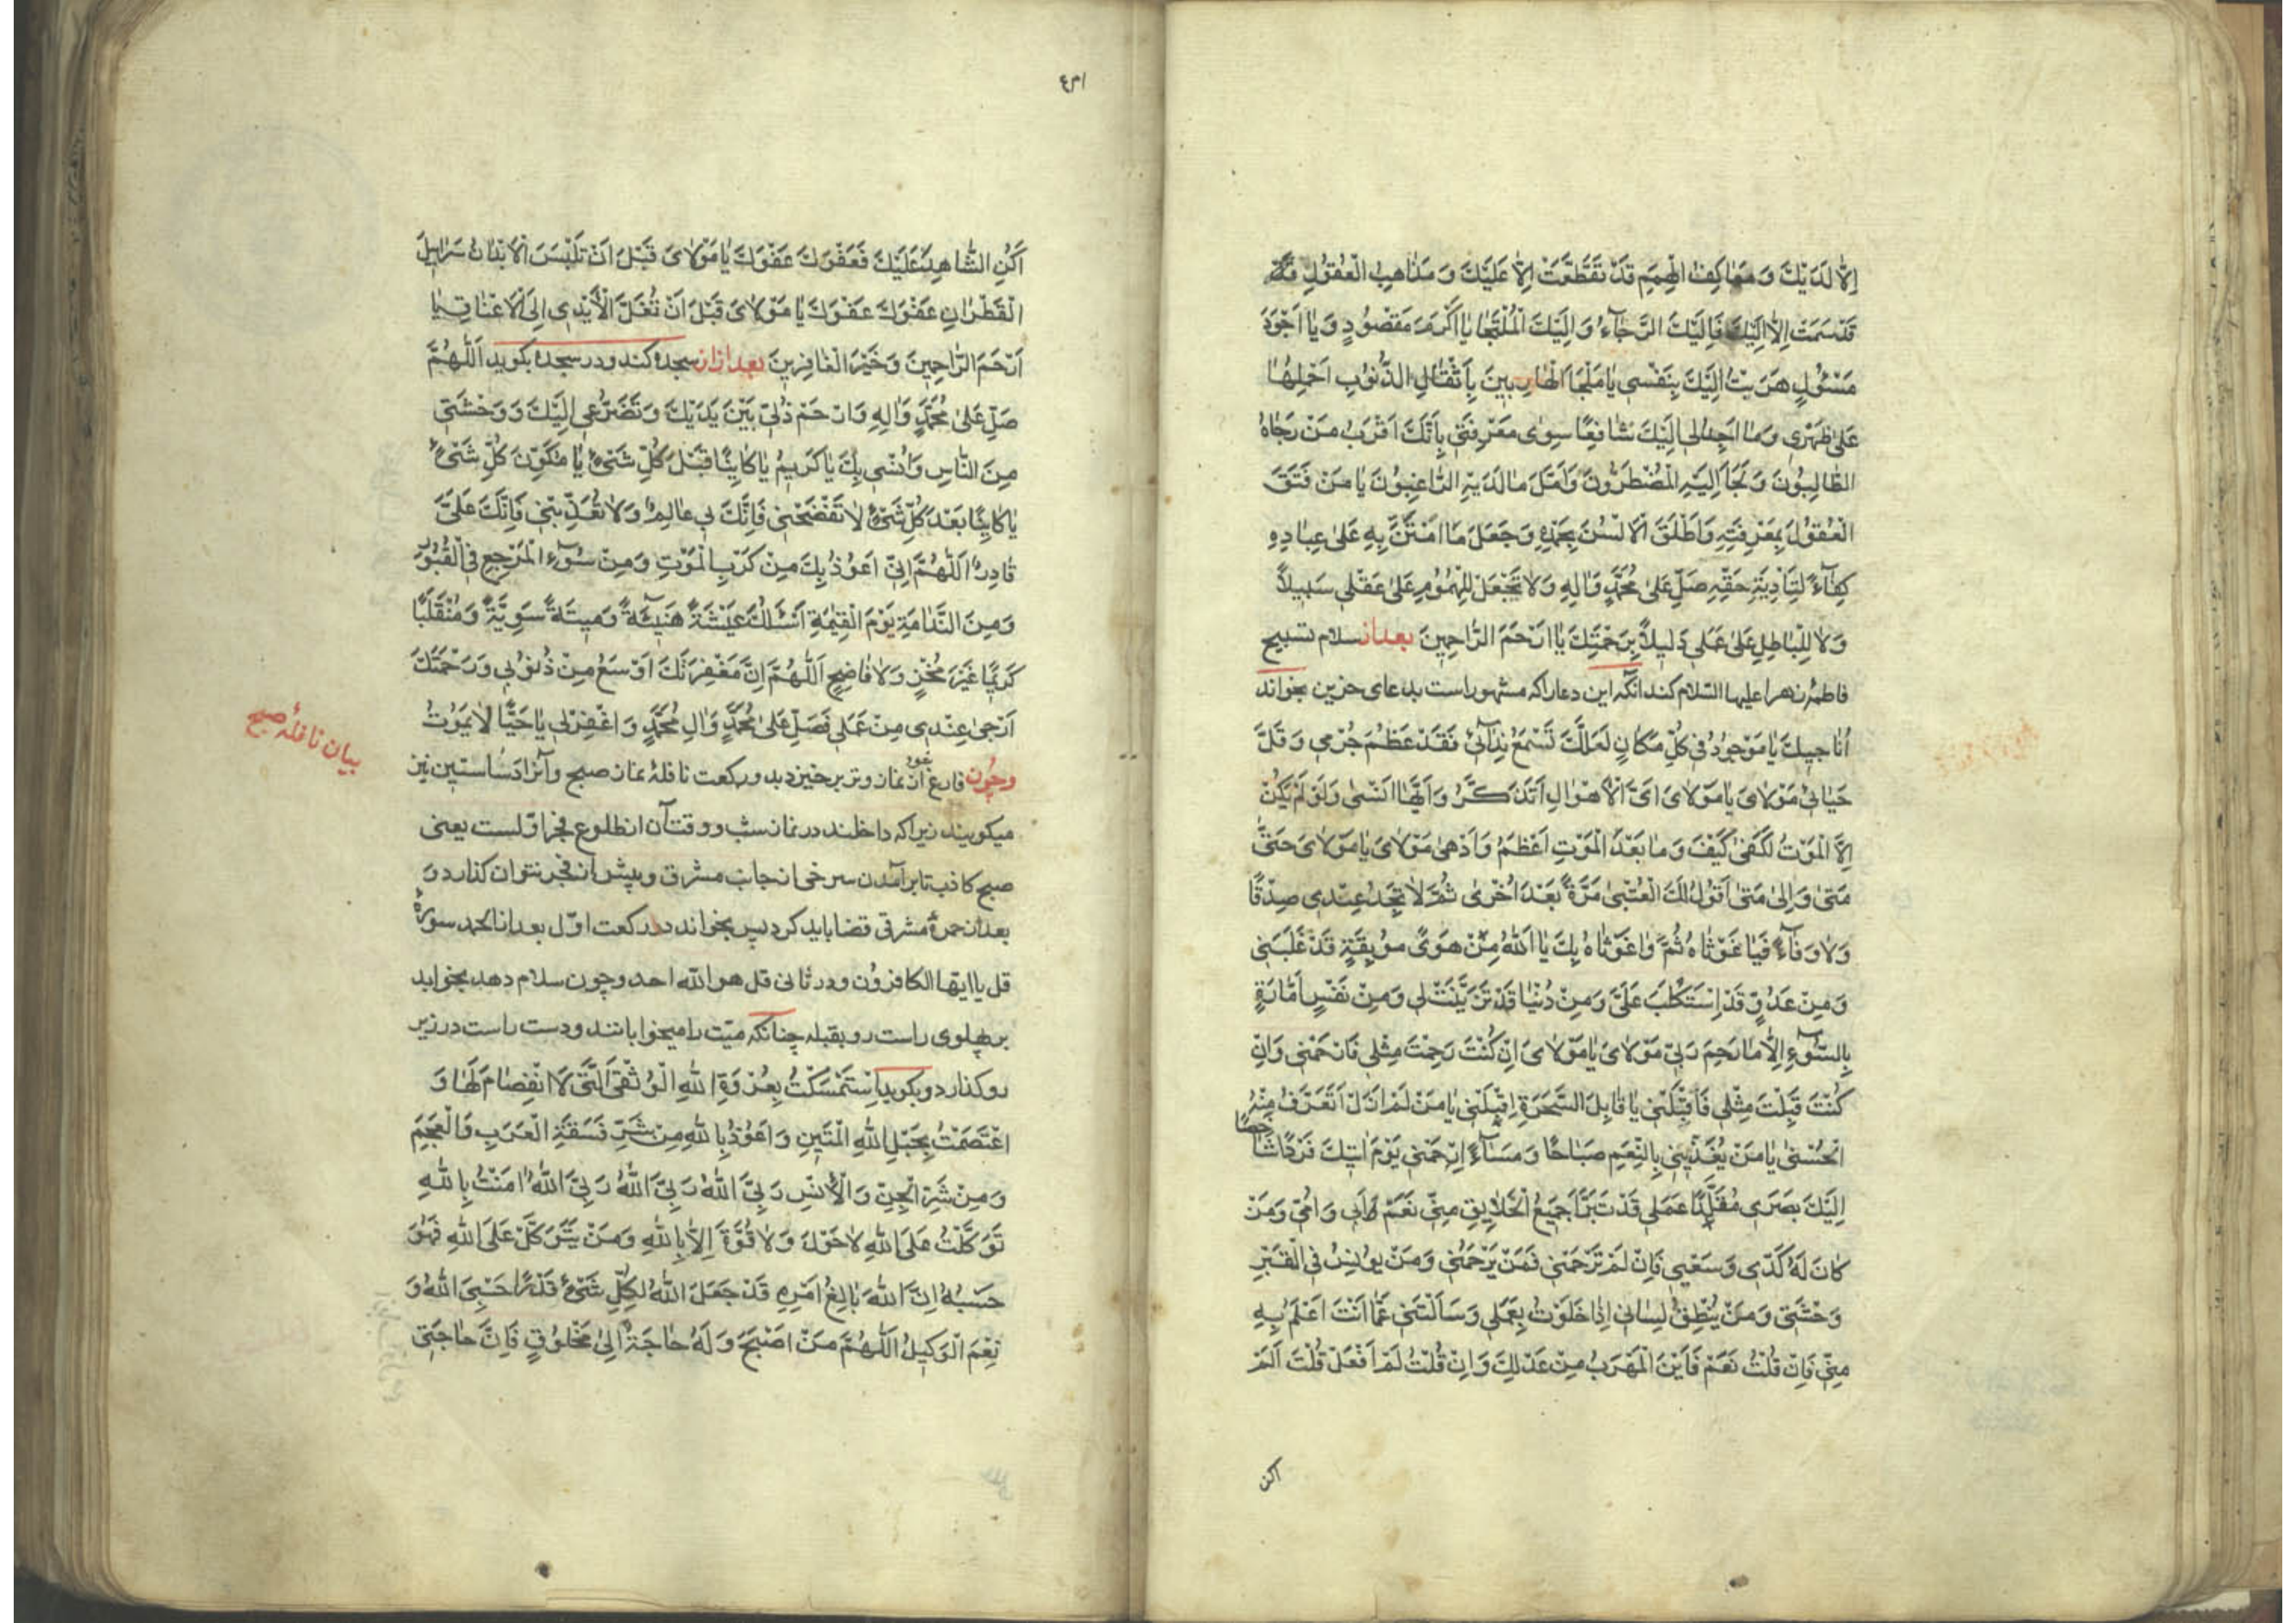 اِلّا لَدَيْكَ وَ مَعٰاكِفُ الْهِمَمِ قَدْ تَقَطَّعَتْ اِلّا عَلَيْكَ وَ مَذٰاهِبُ الْعُقُولِ
قَدْ سَمَتْ اِلّا اِلَيْكَ فَاِلَيْكَ الرَّجٰآءُ وَ اِلَيْكَ الْمُلْتَجٰا يٰا اَكْرَمَ مَقْصُودٍ وَ يٰا اَجْوَدَ
مَسْئُولٍ هَرَبْتُ اِلَيْكَ بِنَفْسى يٰا مَلْجَاَ الْهٰارِبينَ بِاَثْقٰالِ الذُّنُوبِ اَحْمِلُهٰا
عَلىٰ ظَهْرى وَ مٰا اَجِدُ لى اِلَيْكَ شٰافِعًا سِوىٰ مَعْرِفَتى بِاَنَّكَ اَقْرَبُ مَنْ رَجٰاهُ
الطّٰالِبُونَ وَ لَجَاَ اِلَيْهِ الْمُضْطَرُّونَ وَ اَمَّلَ مٰا لَدَيْهِ الرّٰاغِبُونَ يٰا مَنْ فَتَقَ
الْعُقُولَ بِمَعْرِفَتِهِ وَ اَطْلَقَ الْاَلْسُنَ بِحَمْدِهِ وَ جَعَلَ مٰا امْتَنَّ بِهِ عَلىٰ عِبٰادِهِ
كِفٰآءً لِتَاْدِيَةِ حَقِّهِ صَلِّ عَلىٰ مُحَمَّدٍ وَ اٰلِهِ وَ لٰا تَجْعَلْ لِلْهُمُومِ عَلىٰ عَقْلى سَبيلاً
وَ لٰا لِلْبٰاطِلِ عَلىٰ عَمَلى دَليلاً بِرَحْمَتِكَ يٰا اَرْحَمَ الرّٰاحِمينَ بعد از سلام تسبيح
فاطمۀ زهرا عليها السّلام كند آنگه اين دعا را كه مشهور است بدعاى حزين بخواند
اُنٰاجيكَ يٰا مَوْجُودُ فى كُلِّ مَكٰانٍ لَعَلَّكَ تَسْمَعُ نِدٰآئى فَقَدْ عَظُمَ جُرْمى وَ قَلَّ
حَيٰائى مَوْلٰاىَ يٰا مَوْلٰاىَ اَىَّ الْاَهْوٰالِ اَتَذَكَّرُ وَ اَيَّهٰا اَنْسىٰ وَ لَوْ لَمْ يَكُنْ
اِلَّا الْمَوْتُ لَكَفىٰ كَيْفَ وَ مٰا بَعْدَ الْمَوْتِ اَعْظَمُ وَ اَدْهىٰ مَوْلٰاىَ يٰا مَوْلٰاىَ حَتّىٰ
مَتىٰ وَ اِلىٰ مَتىٰ اَقُولُ لَكَ الْعُتْبىٰ مَرَّةً بَعْدَ اُخْرىٰ ثُمَّ لٰا تَجِدُ عِنْدى صِدْقًا
وَ لٰا وَفٰآءً فَيٰا غَوْثٰاهُ ثُمَّ وٰا غَوْثٰاهُ بِكَ يٰا اَللّٰهُ مِنْ هَوًى مُوبِقَةٍ قَدْ غَلَبَنى
وَ مِنْ عَدُوٍّ قَدِ اسْتَكْلَبَ عَلَىَّ وَ مِنْ دُنْيٰا قَدْ تَزَيَّنَتْ لى وَ مِنْ نَفْسٍ اَمّٰارَةٍ
بِالسُّوٓءِ اِلّا مٰا رَحِمَ رَبّى مَوْلٰاىَ يٰا مَوْلٰاىَ اِنْ كُنْتَ رَحِمْتَ مِثْلى فَارْحَمْنى وَ اِنْ
كُنْتَ قَبِلْتَ مِثْلى فَاقْبَلْنى يٰا قٰابِلَ السَّحَرَةِ اِقْبَلْنى يٰا مَنْ لَمْ اَزَلْ اَتَعَرَّفُ مِنْهُ
الْحُسْنىٰ يٰا مَنْ يُغَذّينى بِالنِّعَمِ صَبٰاحًا وَ مَسٰآءً اِرْحَمْنى يَوْمَ اٰتيكَ فَرْدًا شٰاخِصًا
اِلَيْكَ بَصَرى مُقَلَّدًا عَمَلى قَدْ تَبَرَّاَ جَميعُ الْخَلٰايِقِ مِنّى نَعَمْ وَ اَبى وَ اُمّى وَ مَنْ
كٰانَ لَهُ كَدّى وَ سَعْيى فَاِنْ لَمْ تَرْحَمْنى فَمَنْ يَرْحَمُنى وَ مَنْ يُونِسُ فِى الْقَبْرِ
وَحْشَتى وَ مَنْ يُنْطِقُ لِسٰانى اِذٰا خَلَوْتُ بِعَمَلى وَ سَاَلْتَنى عَمّٰا اَنْتَ اَعْلَمُ بِهِ
مِنّى فَاِنْ قُلْتُ نَعَمْ فَاَيْنَ الْمَهْرَبُ مِنْ عَدْلِكَ وَ اِنْ قُلْتُ لَمْ اَفْعَلْ قُلْتَ اَلَمْ
اكن
اَكُنِ الشّٰاهِدَ عَلَيْكَ فَعَفْوَكَ عَفْوَكَ يٰا مَوْلٰاىَ قَبْلَ اَنْ تَلْبَسَ الْاَبْدٰانُ سَرٰابيلَ
الْقَطْرٰانِ عَفْوَكَ عَفْوَكَ يٰا مَوْلٰاىَ قَبْلَ اَنْ تُغَلَّ الْاَيْدى اِلَى الْاَعْنٰاقِ يٰا
اَرْحَمَ الرّٰاحِمينَ وَ خَيْرَ الْغٰافِرينَ بعد ازان سجده كند و در سجده بگويد اَللّٰهُمَّ
صَلِّ عَلىٰ مُحَمَّدٍ وَ اٰلِهِ وَ ارْحَمْ ذُلّى بَيْنَ يَدَيْكَ وَ تَضَرُّعى اِلَيْكَ وَ وَحْشَتى
مِنَ النّٰاسِ وَ اُنْسى بِكَ يٰا كَريمُ يٰا كٰايِنًا قَبْلَ كُلِّ شَىْءٍ يٰا مُكَوِّنَ كُلِّ شَىْءٍ
يٰا كٰايِنًا بَعْدَ كُلِّ شَىْءٍ لٰا تَفْضَحْنى فَاِنَّكَ بى عٰالِمٌ وَ لٰا تُعَذِّبْنى فَاِنَّكَ عَلَىَّ
قٰادِرٌ اَللّٰهُمَّ اِنّى اَعُوذُ بِكَ مِنْ كَرْبِ الْمَوْتِ وَ مِنْ سُوٓءِ الْمَرْجِعِ فِى الْقُبُورِ
وَ مِنَ النَّدٰامَةِ يَوْمَ الْقِيٰمَةِ اَسْئَلُكَ عيشَةً هَنيئَةً وَ ميتَةً سَوِيَّةً وَ مُنْقَلَبًا
كَريمًا غَيْرَ مُخْزٍ وَ لٰا فٰاضِحٍ اَللّٰهُمَّ اِنَّ مَغْفِرَتَكَ اَوْسَعُ مِنْ ذُنُوبى وَ رَحْمَتَكَ
اَرْجىٰ عِنْدى مِنْ عَمَلى فَصَلِّ عَلىٰ مُحَمَّدٍ وَ اٰلِ مُحَمَّدٍ وَ اغْفِرْ لى يٰا حَيًّا لٰا يَمُوتُ
بيان نافلۀ صبح
وچون فارغ شود از نماز وتر برخيزد بدو ركعت نافلۀ نماز صبح و آنرا دسّاستين نيز
ميگويند زيرا كه داخلند در نماز شب و وقت آن از طلوع فجر اوّلست يعنى
صبح كاذب تا برآمدن سرخى از جانب مشرق و پيش از فجر نتوان گذارد و
بعد از حمرۀ مشرقى قضا بايد كرد پس بخواند در ركعت اوّل بعد از الحمد سورۀ
قل يا ايّها الكافرون و در ثانى قل هو اللّه احد و چون سلام دهد بخوابد
بر پهلوى راست رو بقبله چنانكه ميّت را ميخوابانند و دست راست در زير
رو گذارد و بگويد اِسْتَمْسَكْتُ بِعُرْوَةِ اللّٰهِ الْوُثْقىٰ الَّتى لَا انْفِصٰامَ لَهٰا وَ
اعْتَصَمْتُ بِحَبْلِ اللّٰهِ الْمَتينِ وَ اَعُوذُ بِاللّٰهِ مِنْ شَرِّ فَسَقَةِ الْعَرَبِ وَ الْعَجَمِ
وَ مِنْ شَرِّ الْجِنِّ وَ الْاِنْسِ رَبِّىَ اللّٰهُ رَبِّىَ اللّٰهُ رَبِّىَ اللّٰهُ اٰمَنْتُ بِاللّٰهِ
تَوَكَّلْتُ عَلَى اللّٰهِ لٰا حَوْلَ وَ لٰا قُوَّةَ اِلّا بِاللّٰهِ وَ مَنْ يَتَوَكَّلْ عَلَى اللّٰهِ فَهُوَ
حَسْبُهُ اِنَّ اللّٰهَ بٰالِغُ اَمْرِهِ قَدْ جَعَلَ اللّٰهُ لِكُلِّ شَىْءٍ قَدْرًا حَسْبِىَ اللّٰهُ وَ
نِعْمَ الْوَكيلُ اَللّٰهُمَّ مَنْ اَصْبَحَ وَ لَهُ حٰاجَةٌ اِلىٰ مَخْلُوقٍ فَاِنَّ حٰاجَتى